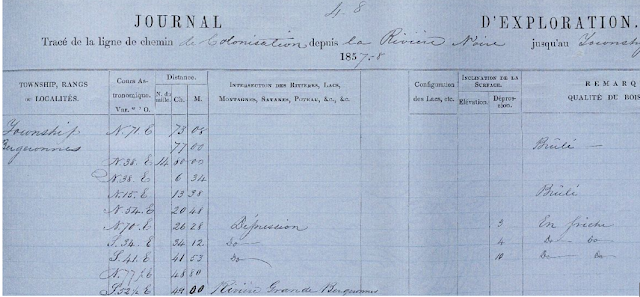 4.8
JOURNAL D'EXPLORATION.
Tracé de la ligne de chemin de Colonisation depuis la Rivière Noire jusqu'au Township
1857-8
TOWNSHIP, RANGS et LOCALITÉS. Cours Astronomique. Var. ° ' O. N. du mille. Distance. Ch. M. INTERSECTION DES RIVIÈRES, LACS, MONTAGNES, SAVANES, POTEAU, &c., &c. Configuration des Lacs, etc. INCLINAISON DE LA SURFACE. Elévation. Dépression. REMARQ QUALITÉ DU BOIS
Township N. 71 E 73 08
Bergeronnes 77 00 Brûlé
N. 38. E 14 80 00
N. 38. E 6 34
N. 15. E 13 38 Brûlé
N. 54. E 20 48
N. 70. E 26 28 Dépression 3 En friche
S. 34. E 34 12 Do 4 Do Do
S. 41. E 41 53 Do 10 Do Do
N. 77½ E 48 80
S. 52½ E 49 00 Rivière Grande Bergeronnes